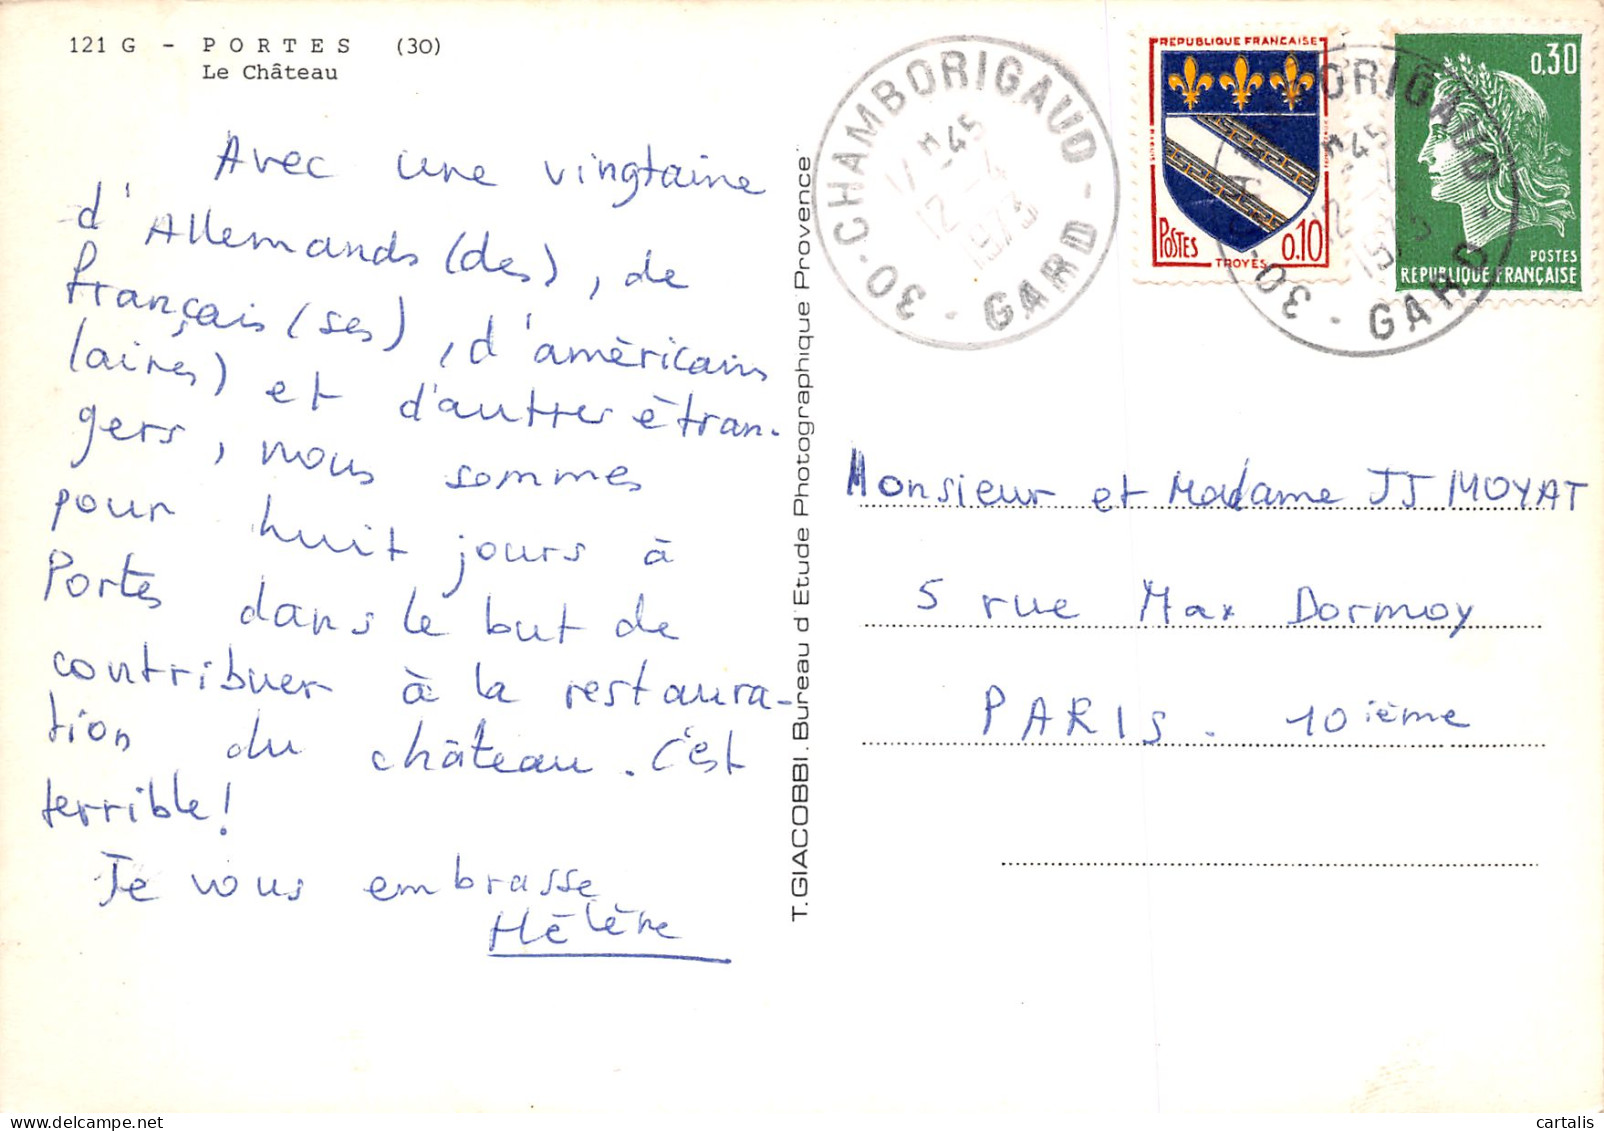 121 G - PORTES (30)
Le Château
Avec une vingtaine
d'Allemands (des), de
français (ses), d'amèricains
(aines) et d'autres ètran-
gers, nous sommes
pour huit jours à
Portes dans le but de
contribuer à la restaura-
tion du château. C'est
terrible!
Je vous embrasse
Hélène
T. GIACOBBI. Bureau d'Etude Photographique Provence
30 - CHAMBORIGAUD - GARD
17H45
12 - 4
1973
REPUBLIQUE FRANÇAISE
POSTES 0.10
TROYES
ORIGAUD - GARD
30
45
12
0,30
POSTES
REPUBLIQUE FRANÇAISE
Monsieur et Madame JJ MOYAT
5 rue Max Dormoy
PARIS. 10ième
cartalis